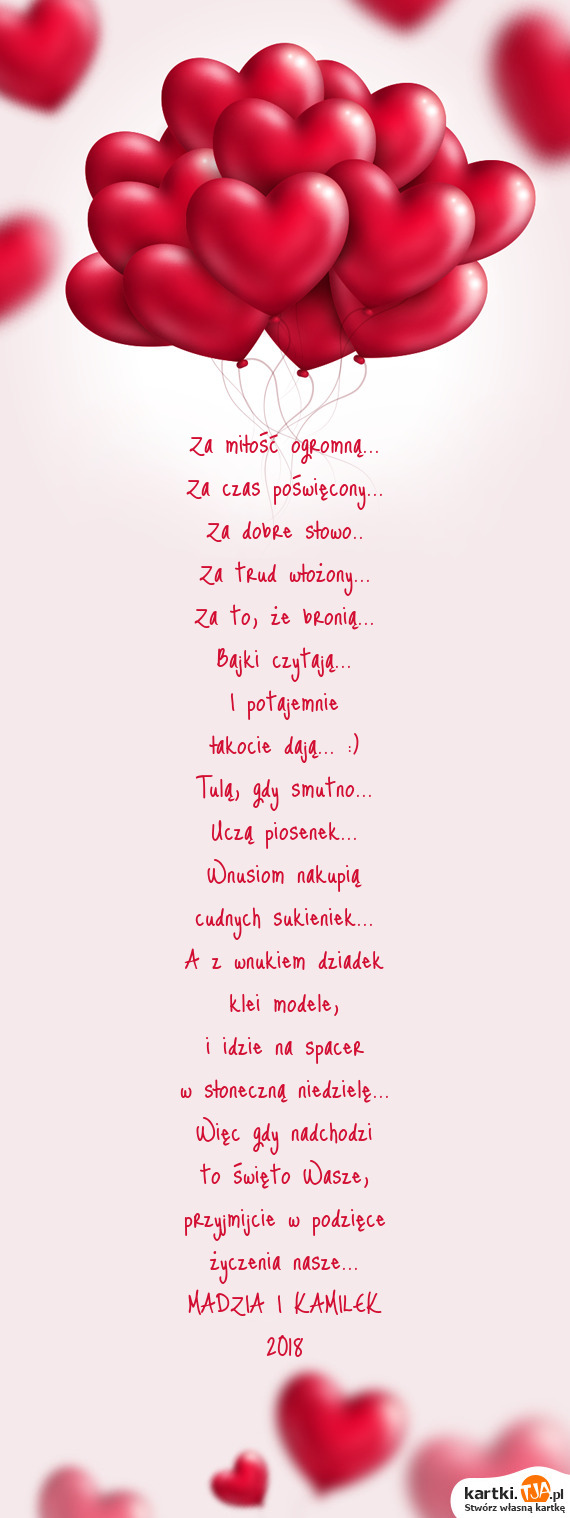 Za miłość ogromną...
Za czas poświęcony...
Za dobre słowo..
Za trud włożony...
Za to, że bronią...
Bajki czytają...
I potajemnie
łakocie dają... :)
Tulą, gdy smutno...
Uczą piosenek...
Wnusiom nakupią
cudnych sukieniek...
A z wnukiem dziadek
klei modele,
i idzie na spacer
w słoneczną niedzielę...
Więc gdy nadchodzi
to święto Wasze,
przyjmijcie w podzięce
życzenia nasze...
MADZIA I KAMILEK
2018
kartki.TJA.pl
Stwórz własną kartkę